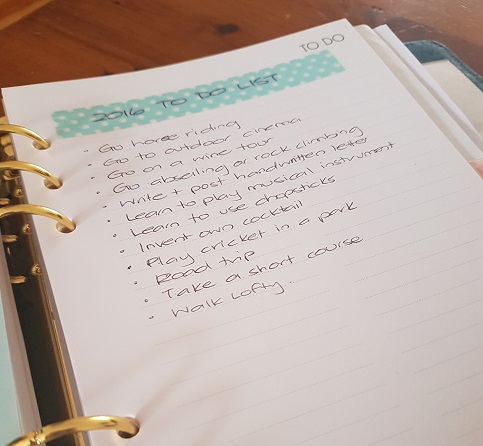 TO DO
2016 TO DO LIST
· Go horse riding
· Go to outdoor cinema
· Go on a wine tour
· Go abseiling or rock climbing
· Write + post handwritten letter
· Learn to play musical instrument
· Learn to use chopsticks
· Invent own cocktail
· Play cricket in a park
· Road trip
· Take a short course
· Walk Lofty.